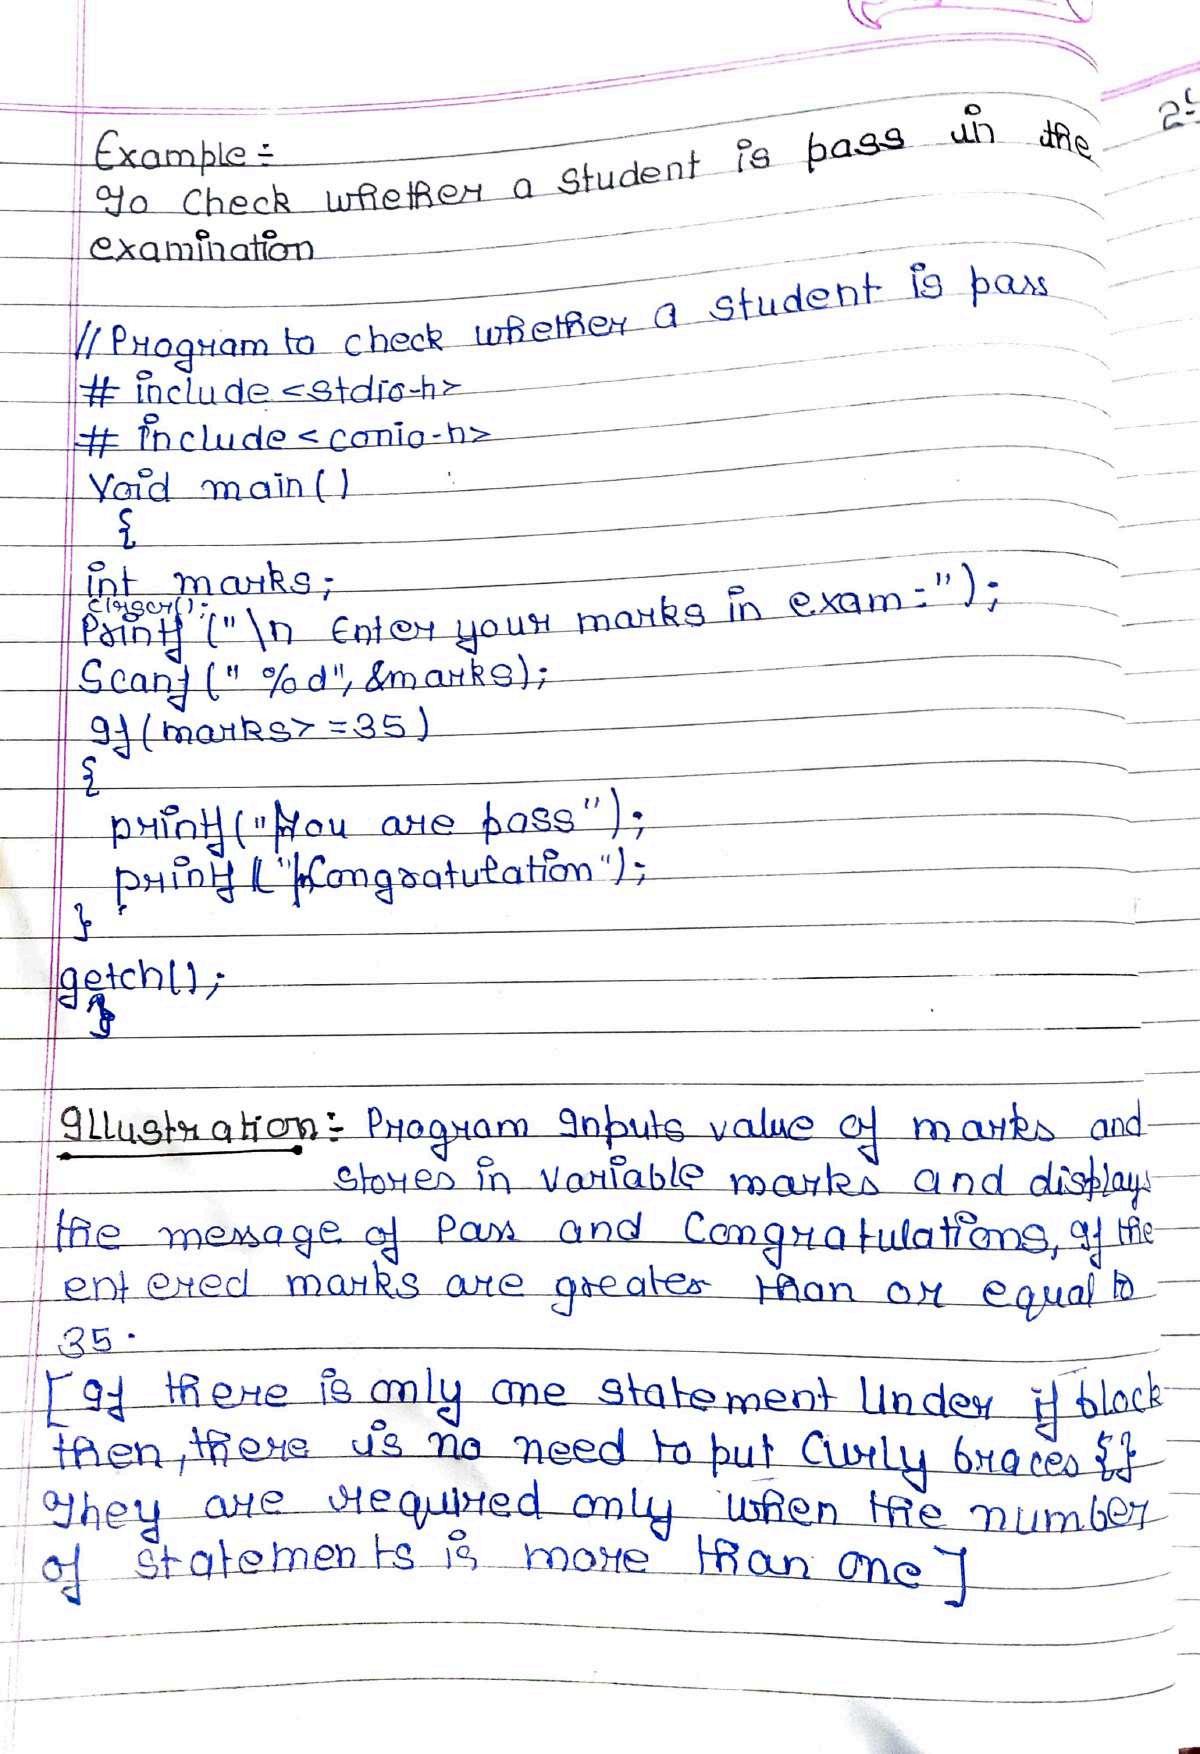 Example:-
To Check whether a student is pass in the
examination
// Program to check whether a student is pass
# include <stdio-h>
# include <conio-h>
Void main()
{
int marks;
clrscr();
Printf ("\n Enter your marks in exam:-");
Scanf (" %d", &marks);
If (marks> =35)
{
printf("\nYou are pass");
printf ("\nCongratulation");
}
getch();
}
Illustration:- Program Inputs value of marks and
stores in variable marks and displays
the message of Pass and Congratulations, If the
entered marks are greater than or equal to
35.
[If there is only one statement Under if block
then, there is no need to put Curly braces {}
They are required only when the number
of statements is more than one]